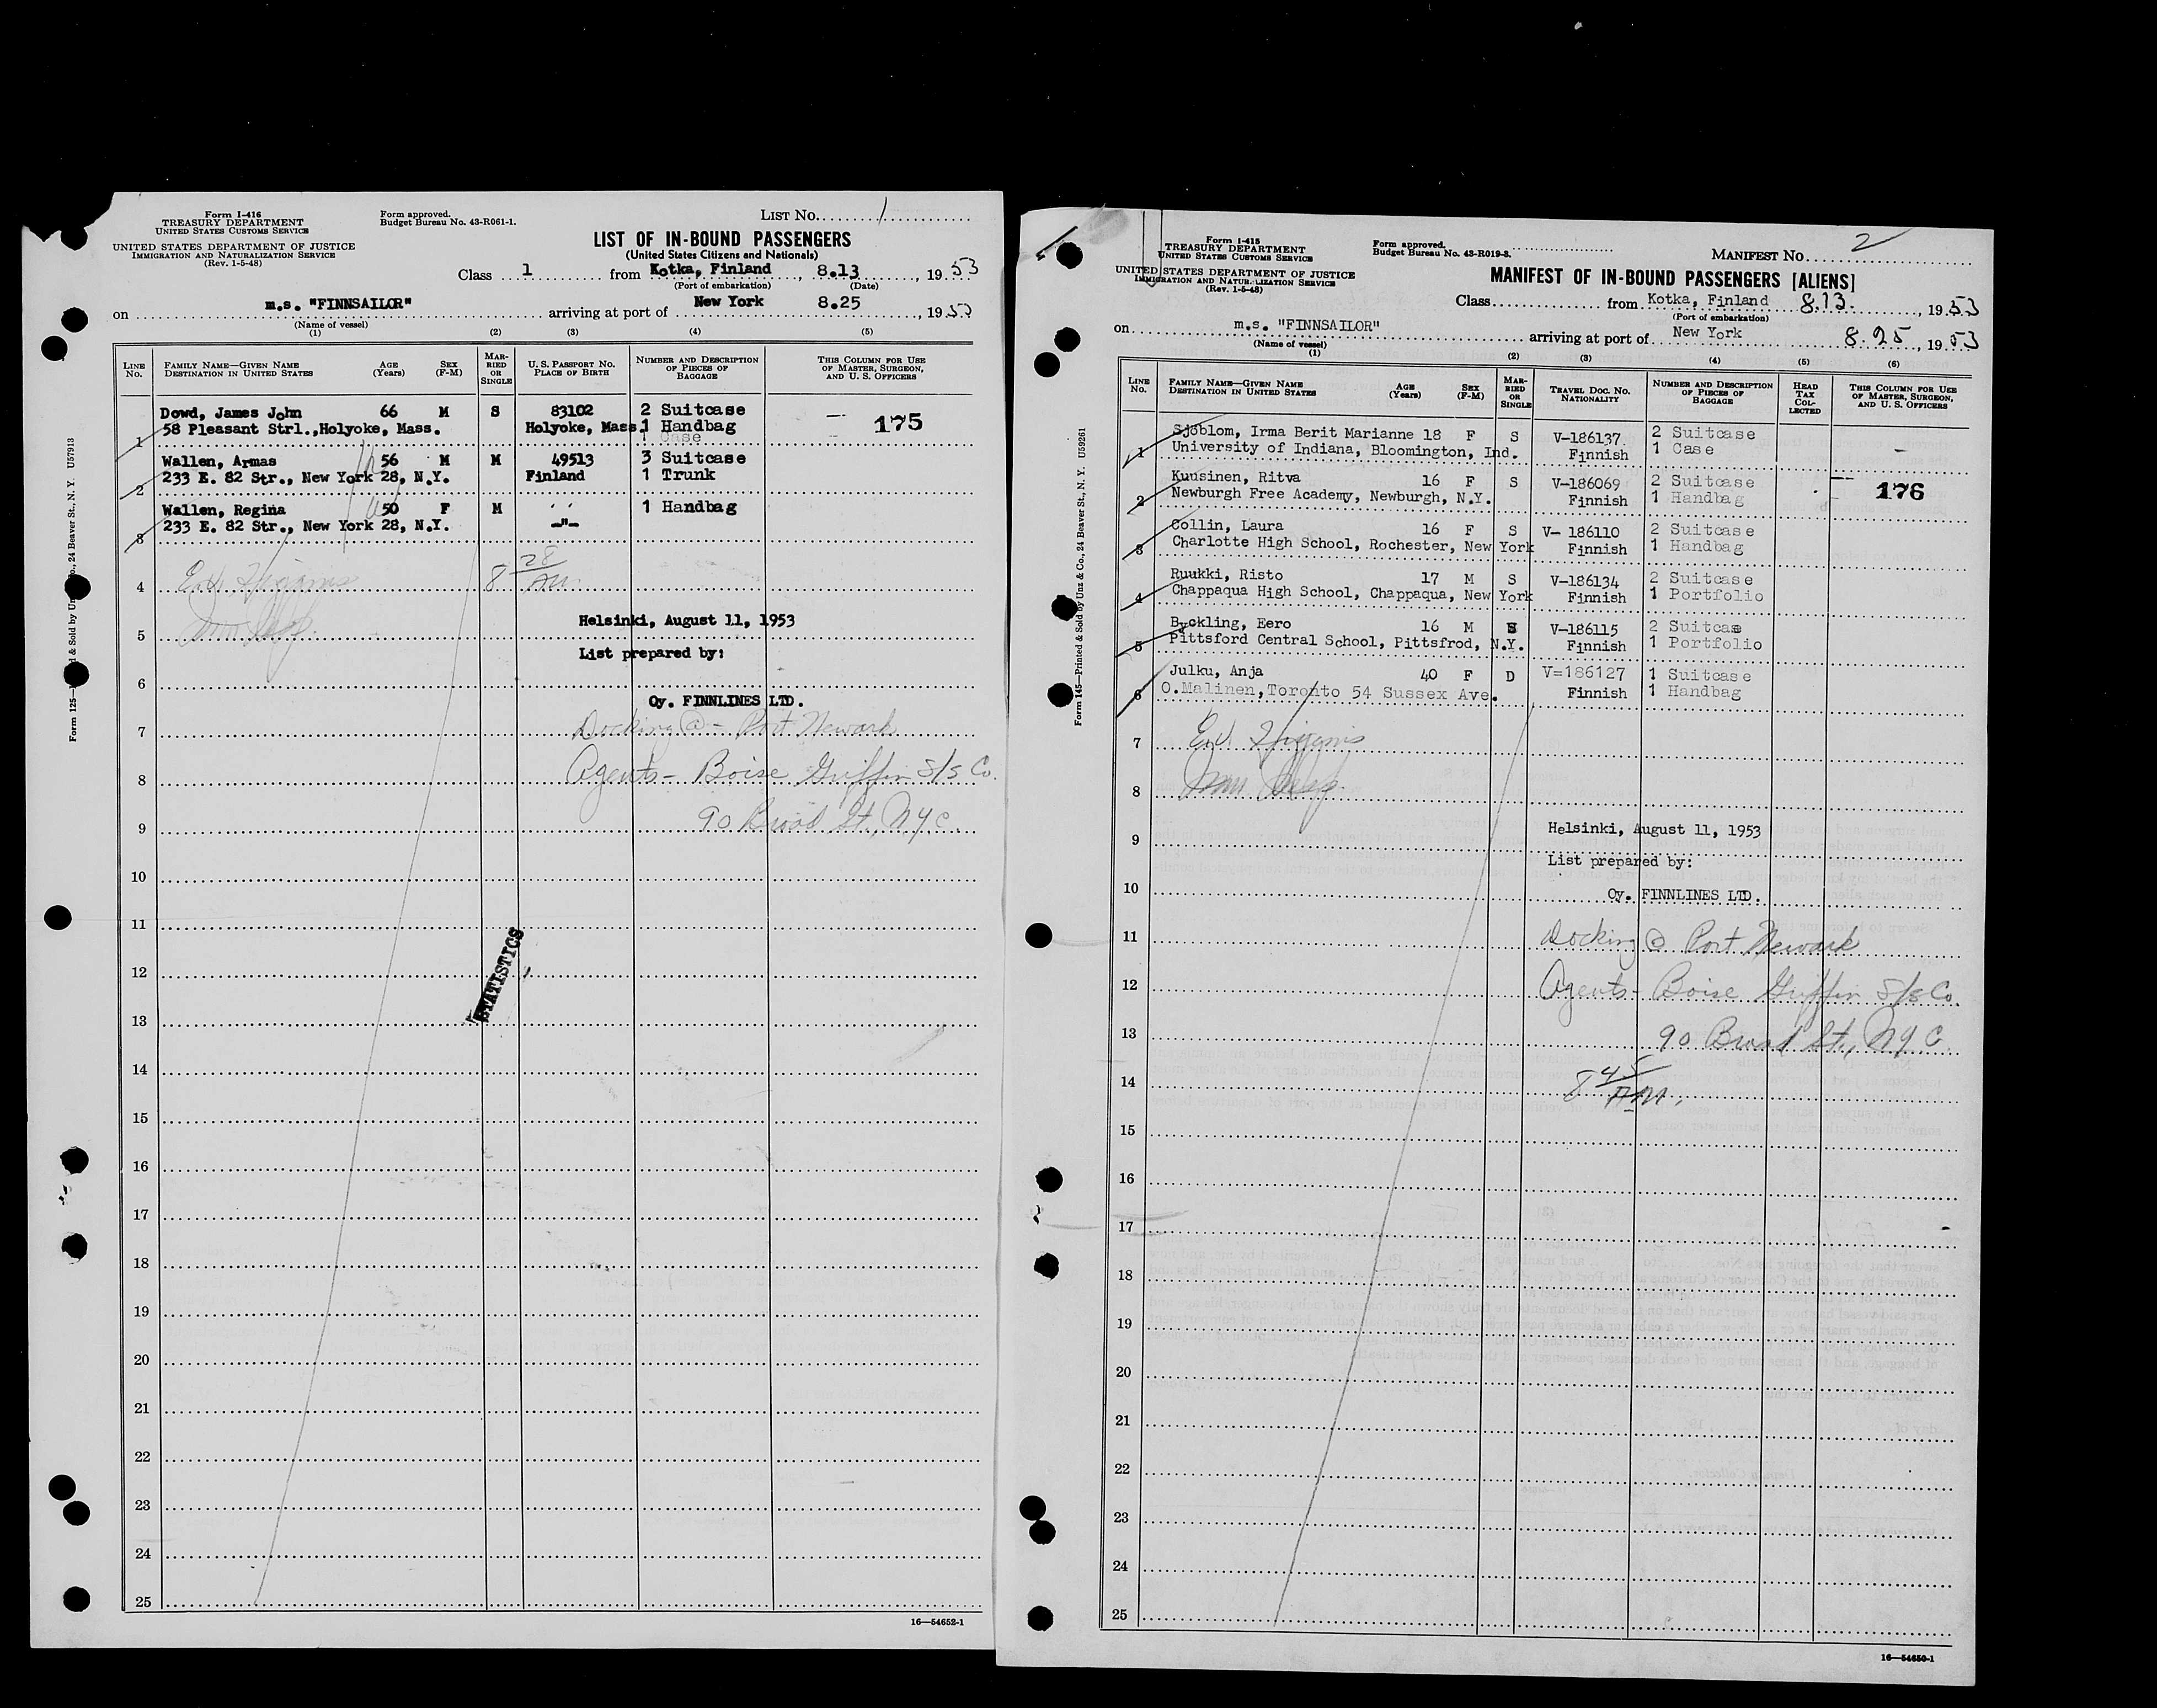 Form I-416
TREASURY DEPARTMENT
UNITED STATES CUSTOMS SERVICE
UNITED STATES DEPARTMENT OF JUSTICE
IMMIGRATION AND NATURALIZATION SERVICE
(Rev. 1-5-48)
Form approved.
Budget Bureau No. 43-R061-1.
LIST No. 1
LIST OF IN-BOUND PASSENGERS
(United States Citizens and Nationals)
Class 1 from Kotka, Finland, 8.13, 1953
(Port of embarkation) (Date)
on m.s. "FINNSAILOR" arriving at port of New York 8.25, 1953
(Name of vessel)
(1) (2) (3) (4) (5)
LINE No. FAMILY NAME—GIVEN NAME DESTINATION IN UNITED STATES AGE (Years) SEX (F-M) MARRIED OR SINGLE U. S. PASSPORT No. PLACE OF BIRTH NUMBER AND DESCRIPTION OF PIECES OF BAGGAGE THIS COLUMN FOR USE OF MASTER, SURGEON, AND U. S. OFFICERS
Dowd, James John 66 M S 83102 2 Suitcase — 175
1 58 Pleasant Strl.,Holyoke, Mass. Holyoke, Mass. 1 Handbag
Case
Wallen, Armas 56 M M 49513 3 Suitcase
2 233 E. 82 Str., New York 28, N.Y. Finland 1 Trunk
Wallen, Regina 50 F M 1 Handbag
3 233 E. 82 Str., New York 28, N.Y. —"—
4 8 28 AM
5 Helsinki, August 11, 1953
List prepared by:
6 Oy. FINNLINES LTD.
7 Docking @ - Port Newark
8 Agents - Boise Griffin S/S Co.
9 90 Broad St., NYC.
10
11
12
STATISTICS
13
14
15
16
17
18
19
20
21
22
23
24
25
16—54652-1
Form 125— & Sold by Un o., 24 Beaver St., N. Y. U57913
Form I-415
TREASURY DEPARTMENT
UNITED STATES CUSTOMS SERVICE
UNITED STATES DEPARTMENT OF JUSTICE
IMMIGRATION AND NATURALIZATION SERVICE
(Rev. 1-5-48)
Form approved.
Budget Bureau No. 43-R019-3.
MANIFEST No. 2
MANIFEST OF IN-BOUND PASSENGERS [ALIENS]
Class from Kotka, Finland 8.13., 1953
(Port of embarkation)
on m.s. "FINNSAILOR" arriving at port of New York 8.25, 1953
(Name of vessel)
(1) (2) (3) (4) (5) (6)
LINE No. FAMILY NAME—GIVEN NAME DESTINATION IN UNITED STATES AGE (Years) SEX (F-M) MARRIED OR SINGLE TRAVEL DOC. No. NATIONALITY NUMBER AND DESCRIPTION OF PIECES OF BAGGAGE HEAD TAX COLLECTED THIS COLUMN FOR USE OF MASTER, SURGEON, AND U. S. OFFICERS
Sjöblom, Irma Berit Marianne 18 F S V-186137 2 Suitcase
1 University of Indiana, Bloomington, Ind. Finnish 1 Case —
Kuusinen, Ritva 16 F S V-186069 2 Suitcase — 176
2 Newburgh Free Academy, Newburgh, N.Y. Finnish 1 Handbag
Collin, Laura 16 F S V- 186110 2 Suitcase
3 Charlotte High School, Rochester, New York Finnish 1 Handbag
Ruukki, Risto 17 M S V-186134 2 Suitcase
4 Chappaqua High School, Chappaqua, New York Finnish 1 Portfolio
Byckling, Eero 16 M S V-186115 2 Suitcase
5 Pittsford Central School, Pittsfrod, N.Y. Finnish 1 Portfolio
Julku, Anja 40 F D V=186127 1 Suitcase
6 O.Malinen,Toronto 54 Sussex Ave. Finnish 1 Handbag
7
8
9 Helsinki, August 11, 1953
List prepared by:
10 Oy. FINNLINES LTD.
11 Docking @ Port Newark
12 Agents - Boise Griffin S/S Co.
13 90 Broad St., NYC
14 8 45 AM.
15
16
17
18
19
20
21
22
23
24
25
16—54650-1
Form 145—Printed & Sold by Unz & Co., 24 Beaver St., N. Y. U59261